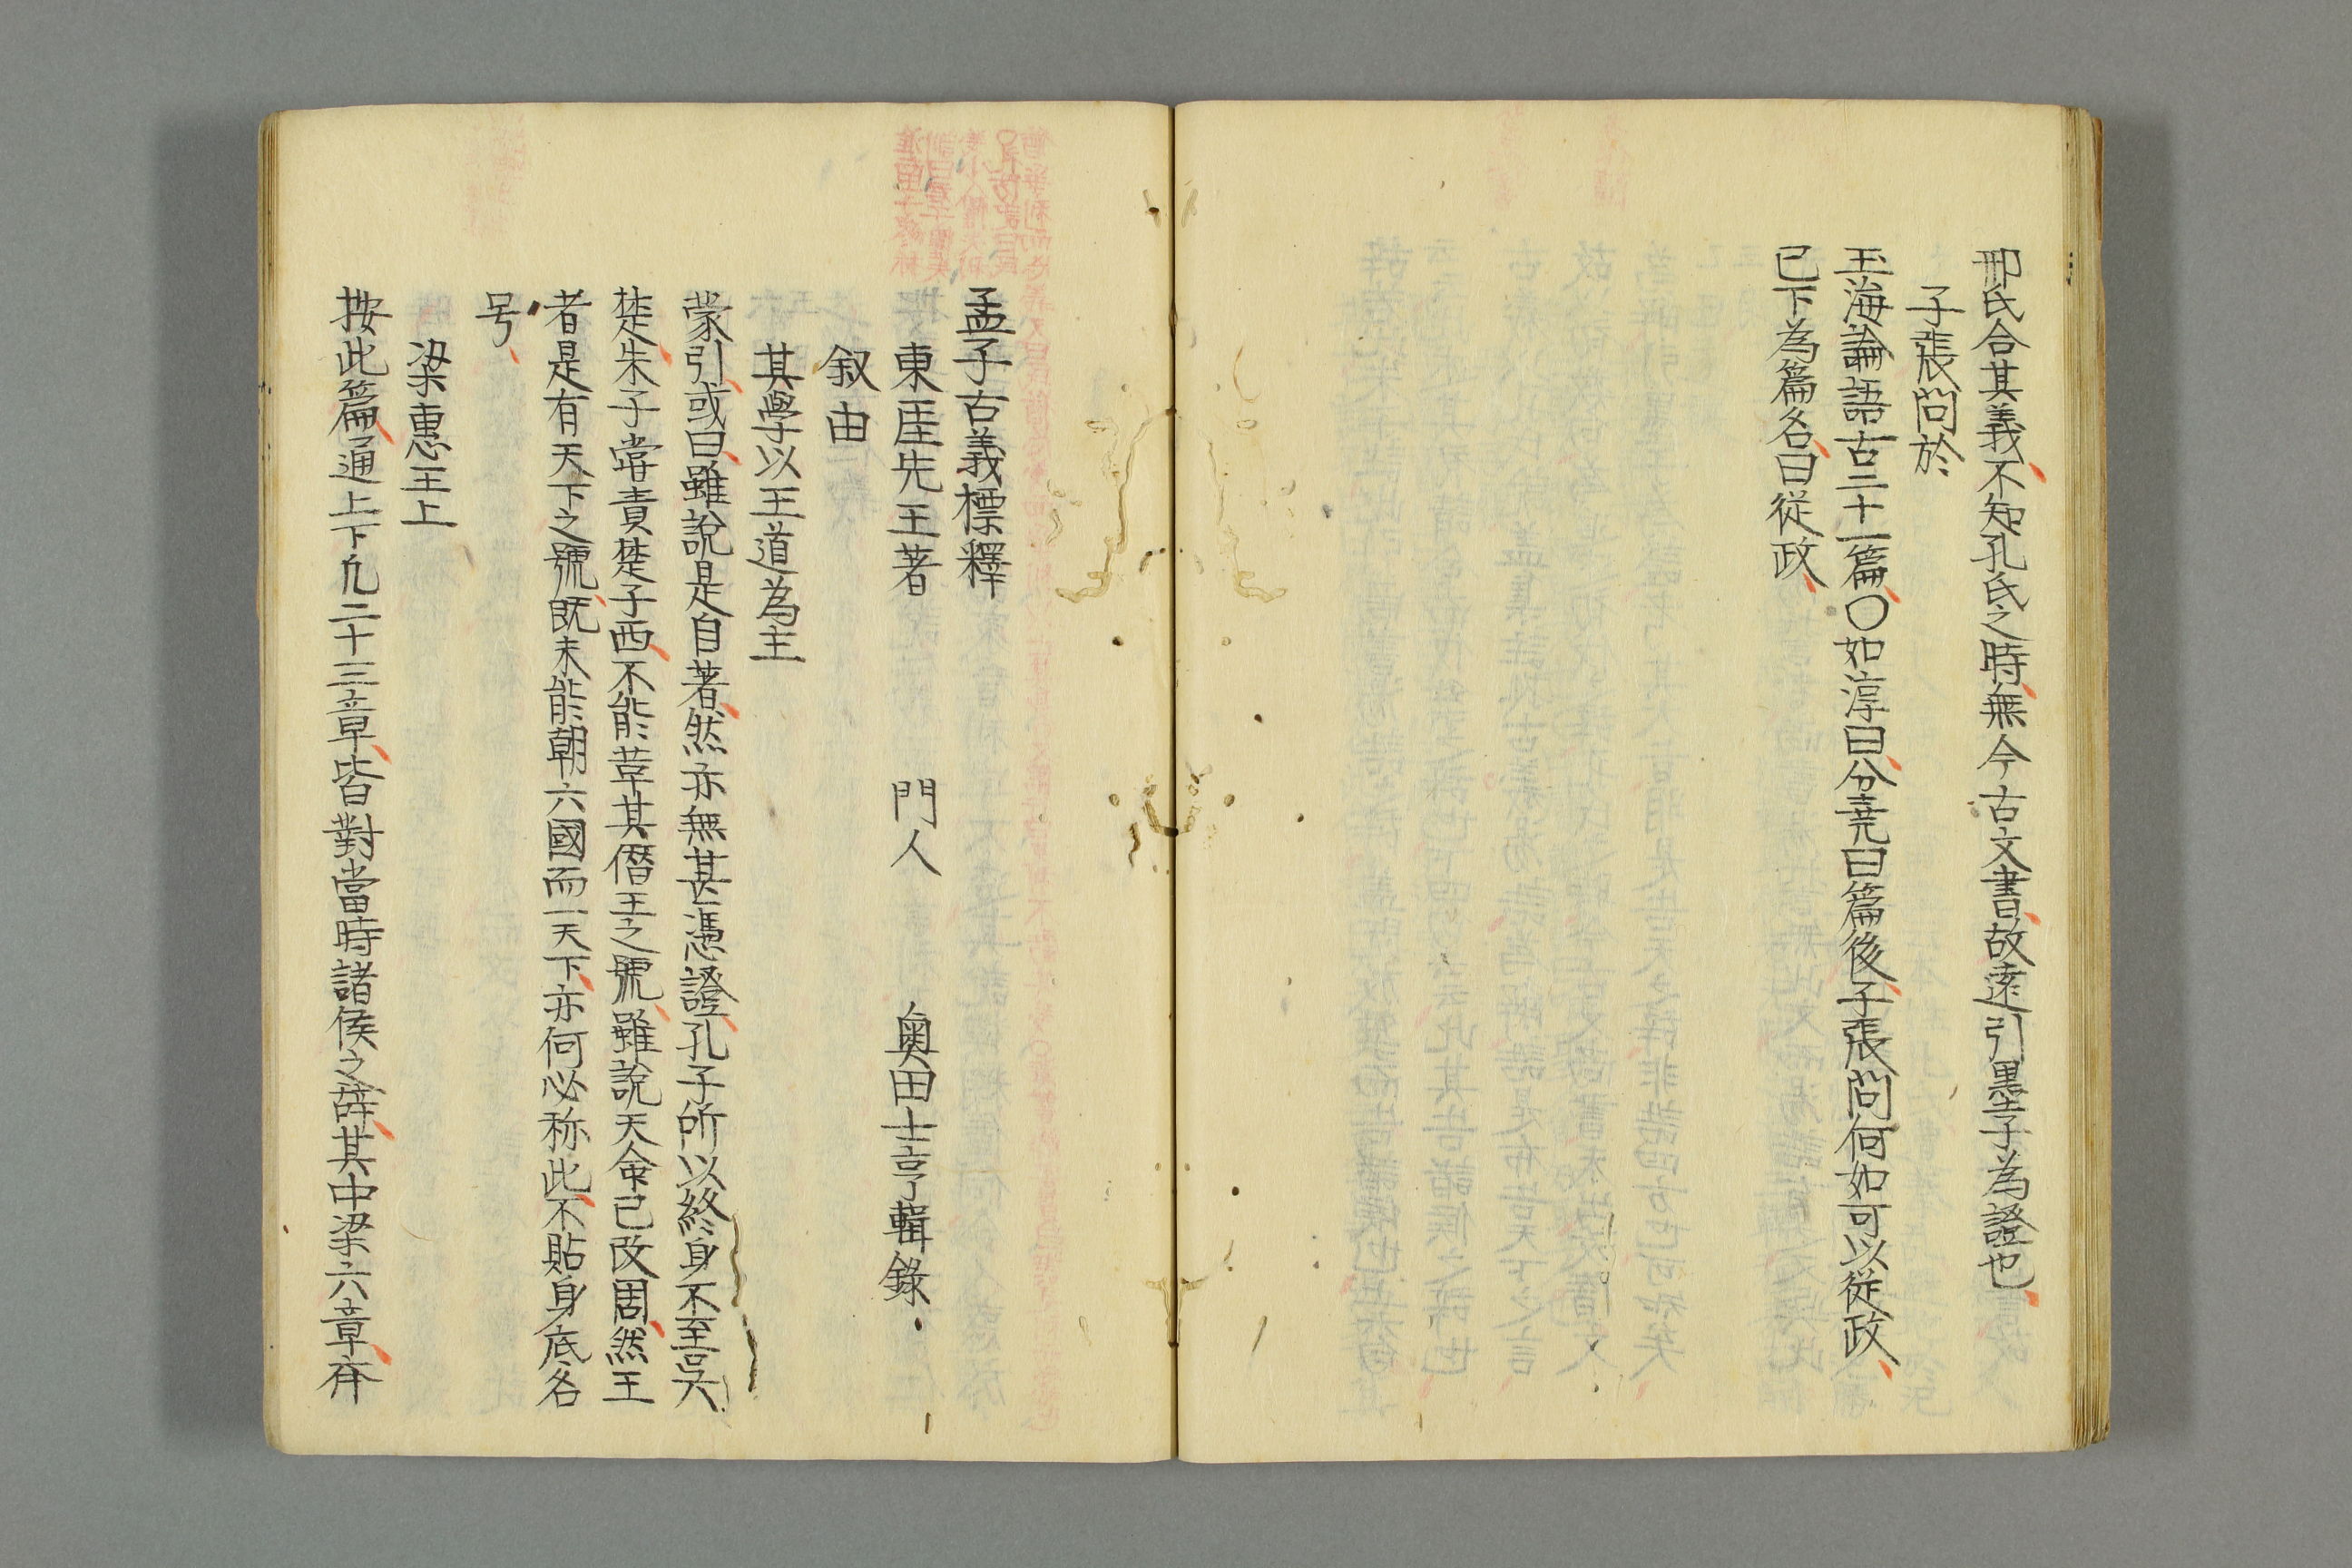 邢氏合其義不知孔氏之時無今古文書故遠引墨子為證也
子張問於
玉海論語古二十一篇〇如淳曰分堯曰篇後子張問何如可以從政
已下為篇名曰從政
孟子古義標釋
東厓先王著　門人　奧田士亨輯錄
叙由
其學以王道為主
蒙引或曰雖說是自著然亦無甚憑證孔子所以終身不至吳
楚朱子嘗責楚子西不能革其僭王之號雖說天命已改周然王
者是有天下之號既未能朝六國而一天下亦何必称此不貼身底名
号
梁惠王上
按此篇通上下凡二十三章皆對當時諸侯之辭其中梁六章斉